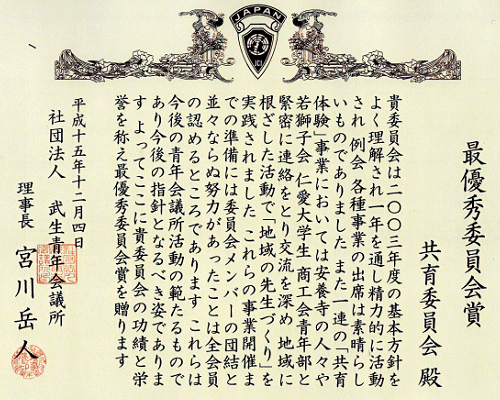 JAPAN
JCI
最優秀委員会賞
共育委員会 殿
貴委員会は二〇〇三年度の基本方針を
よく理解され一年を通し精力的に活動
され 例会 各種事業の出席は素晴らし
いものでありました また一連の「共育
体験」事業においては安養寺の人々や
若獅子会 仁愛大学生 商工会青年部と
緊密に連絡をとり交流を深め 地域に
根ざした活動で「地域の先生づくり」を
実践されました これらの事業開催ま
での準備には委員会メンバーの団結と
並々ならぬ努力があったことは全会員
の認めるところであります これらは
今後の青年会議所活動の範たるもので
あり今後の指針となるべき姿でありま
す よってここに貴委員会の功績と栄
誉を称え最優秀委員会賞を贈ります
平成十五年十二月四日
社団法人 武生青年会議所
理事長 宮川岳人